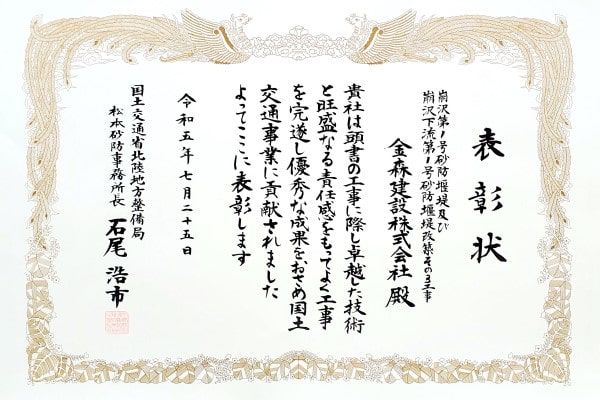 表彰状
崩沢第1号砂防堰堤及び
崩沢下流第1号砂防堰堤改築その3工事
金森建設株式会社 殿
貴社は頭書の工事に際し卓越した技術
と旺盛なる責任感をもってよく工事
を完遂し優秀な成果をおさめ国土
交通事業に貢献されました
よってここに表彰します
令和五年七月二十五日
国土交通省北陸地方整備局
松本砂防事務所長 石尾浩市